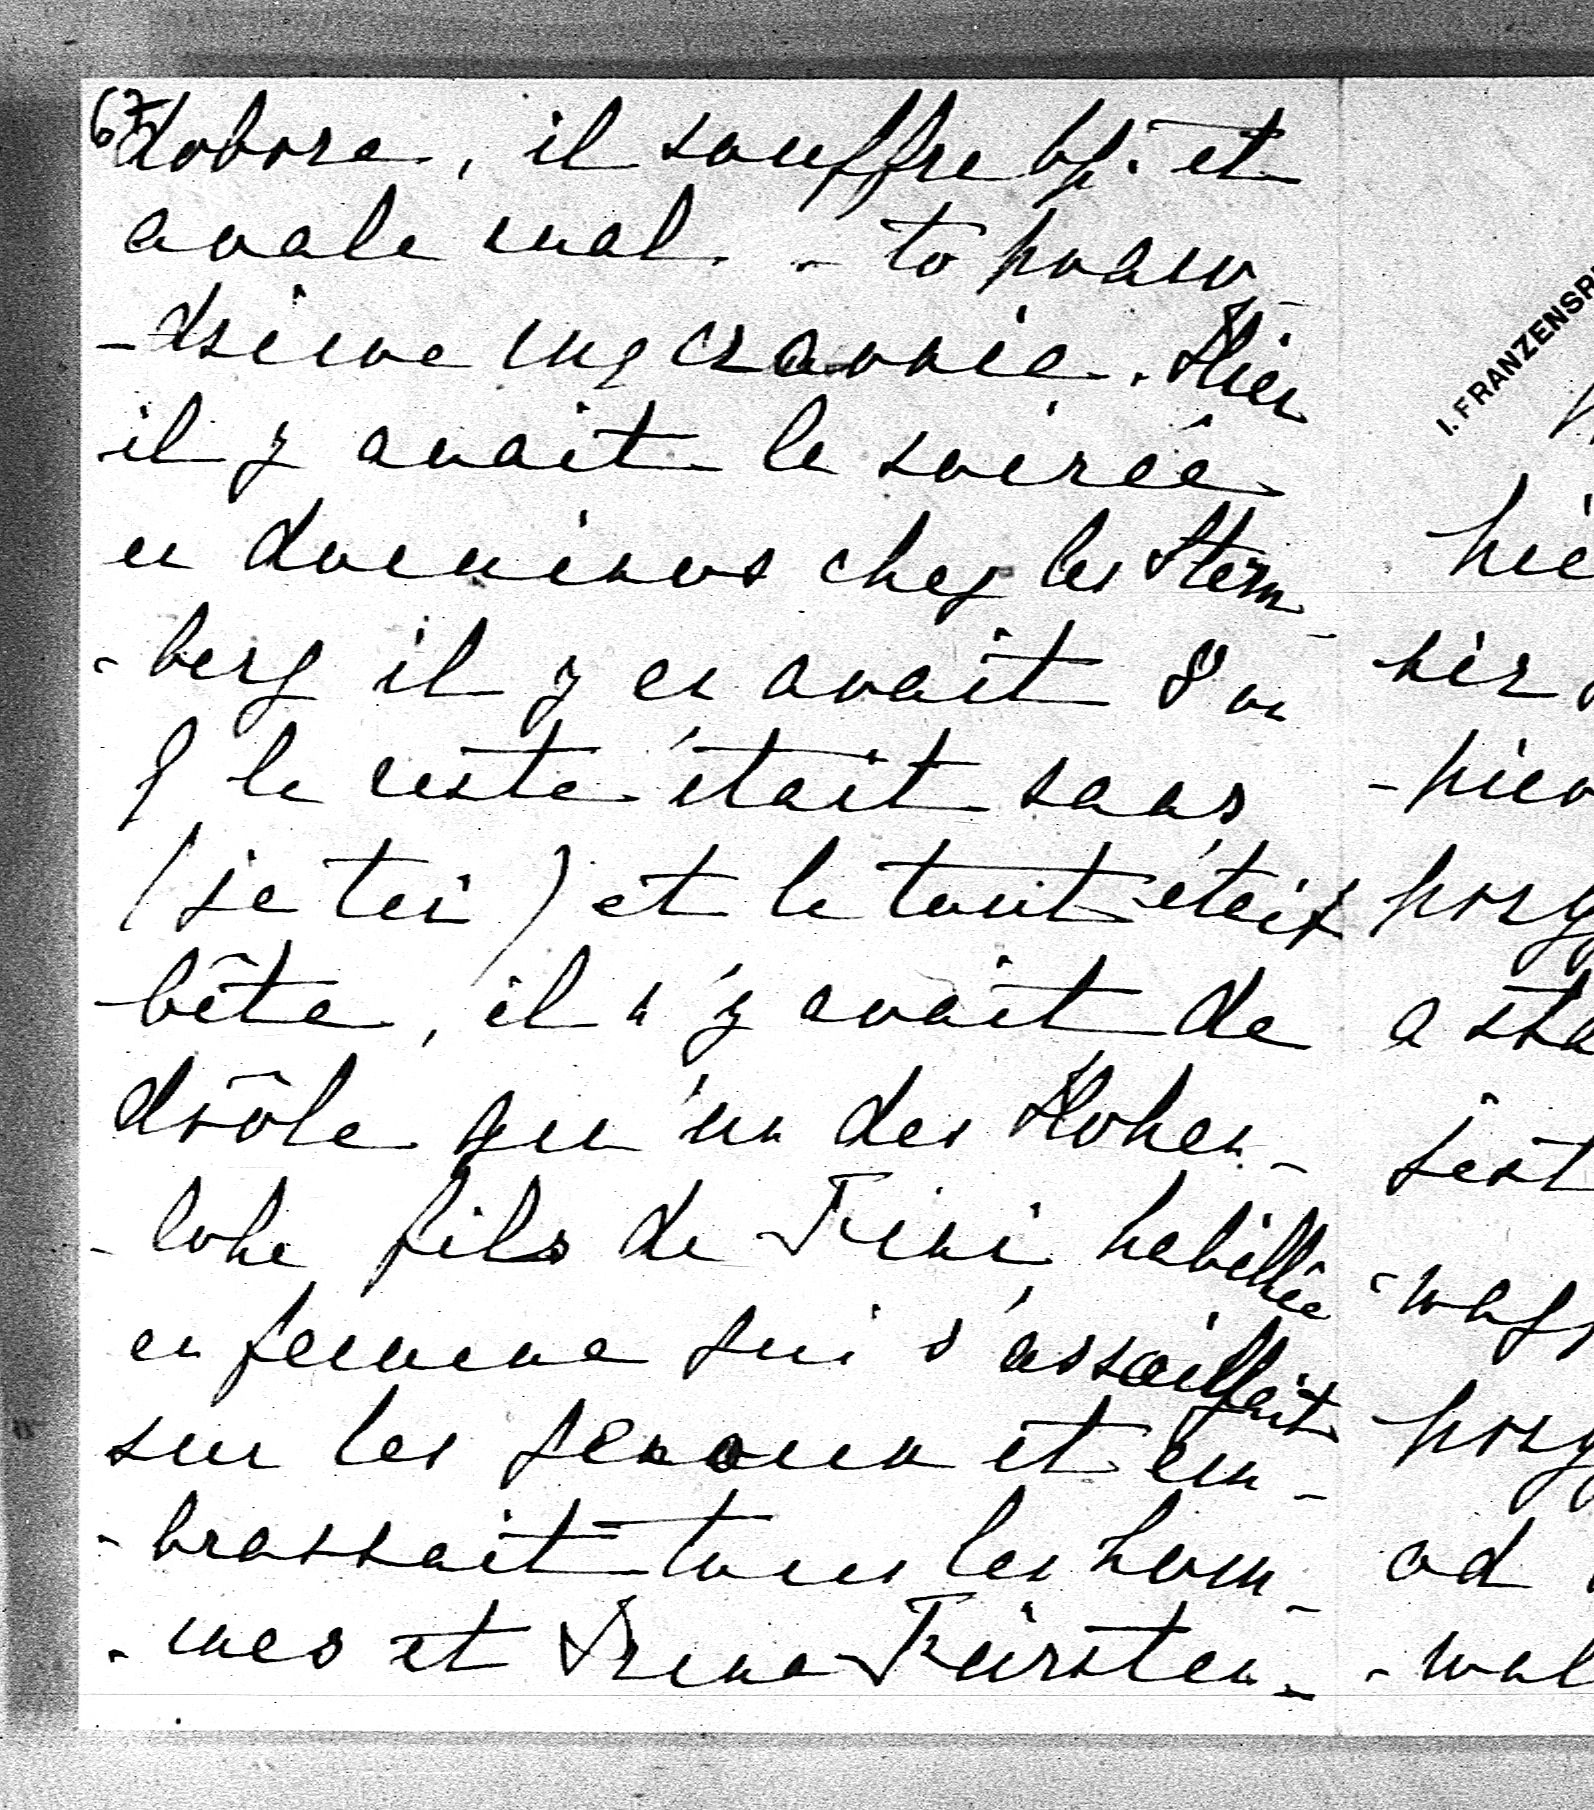 67
dobrze, il souffre bp. et
avale mal. - to praw-
-dziwe męczarnie. Hier
il y avait la soirée
en dominos chez les Stern-
-berg il y en avait 8 ou
9 le reste était sans
(je tei) et le tout était
bête, il n'y avait de
drôle qu'un des Hohen-
-lohe fils de Fini habillée
en femme qui s'assaillait
sur les genoux et em-
-brassait tous les hom-
-mes et Irena Fürsten-
I. FRANZENSR
hie
sir
-pieo
przy
a sta
jest
-wasz
przy
od
-wal